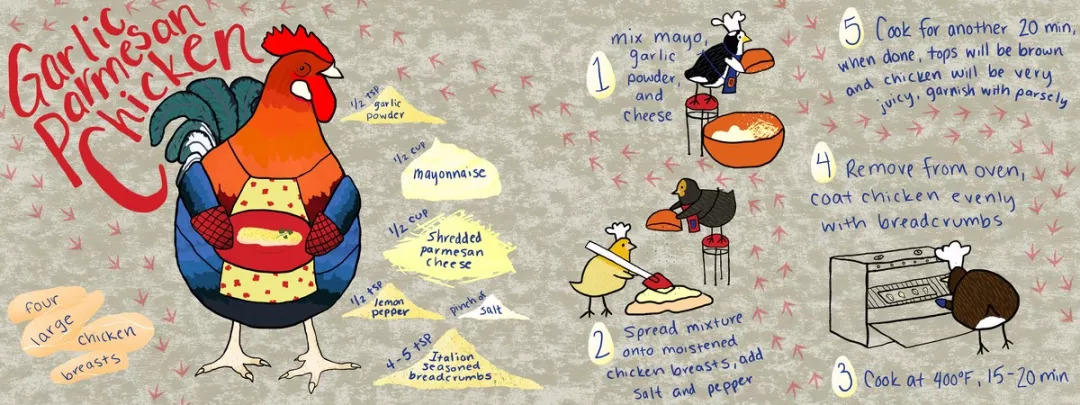 Garlic
Parmesan
Chicken
four
large
chicken
breasts
1/2 tsp
garlic
powder
1/2 cup
mayonnaise
1/2 cup
Shredded
parmesan
cheese
1/2 tsp
lemon
pepper
pinch of
salt
4-5 tsp
Italian
seasoned
breadcrumbs
1
mix mayo,
garlic
powder,
and
cheese
2
Spread mixture
onto moistened
chicken breasts, add
salt and pepper
3 Cook at 400°F, 15-20 min
4 Remove from oven,
coat chicken evenly
with breadcrumbs
5 Cook for another 20 min,
when done, tops will be brown
and chicken will be very
juicy, garnish with parsely